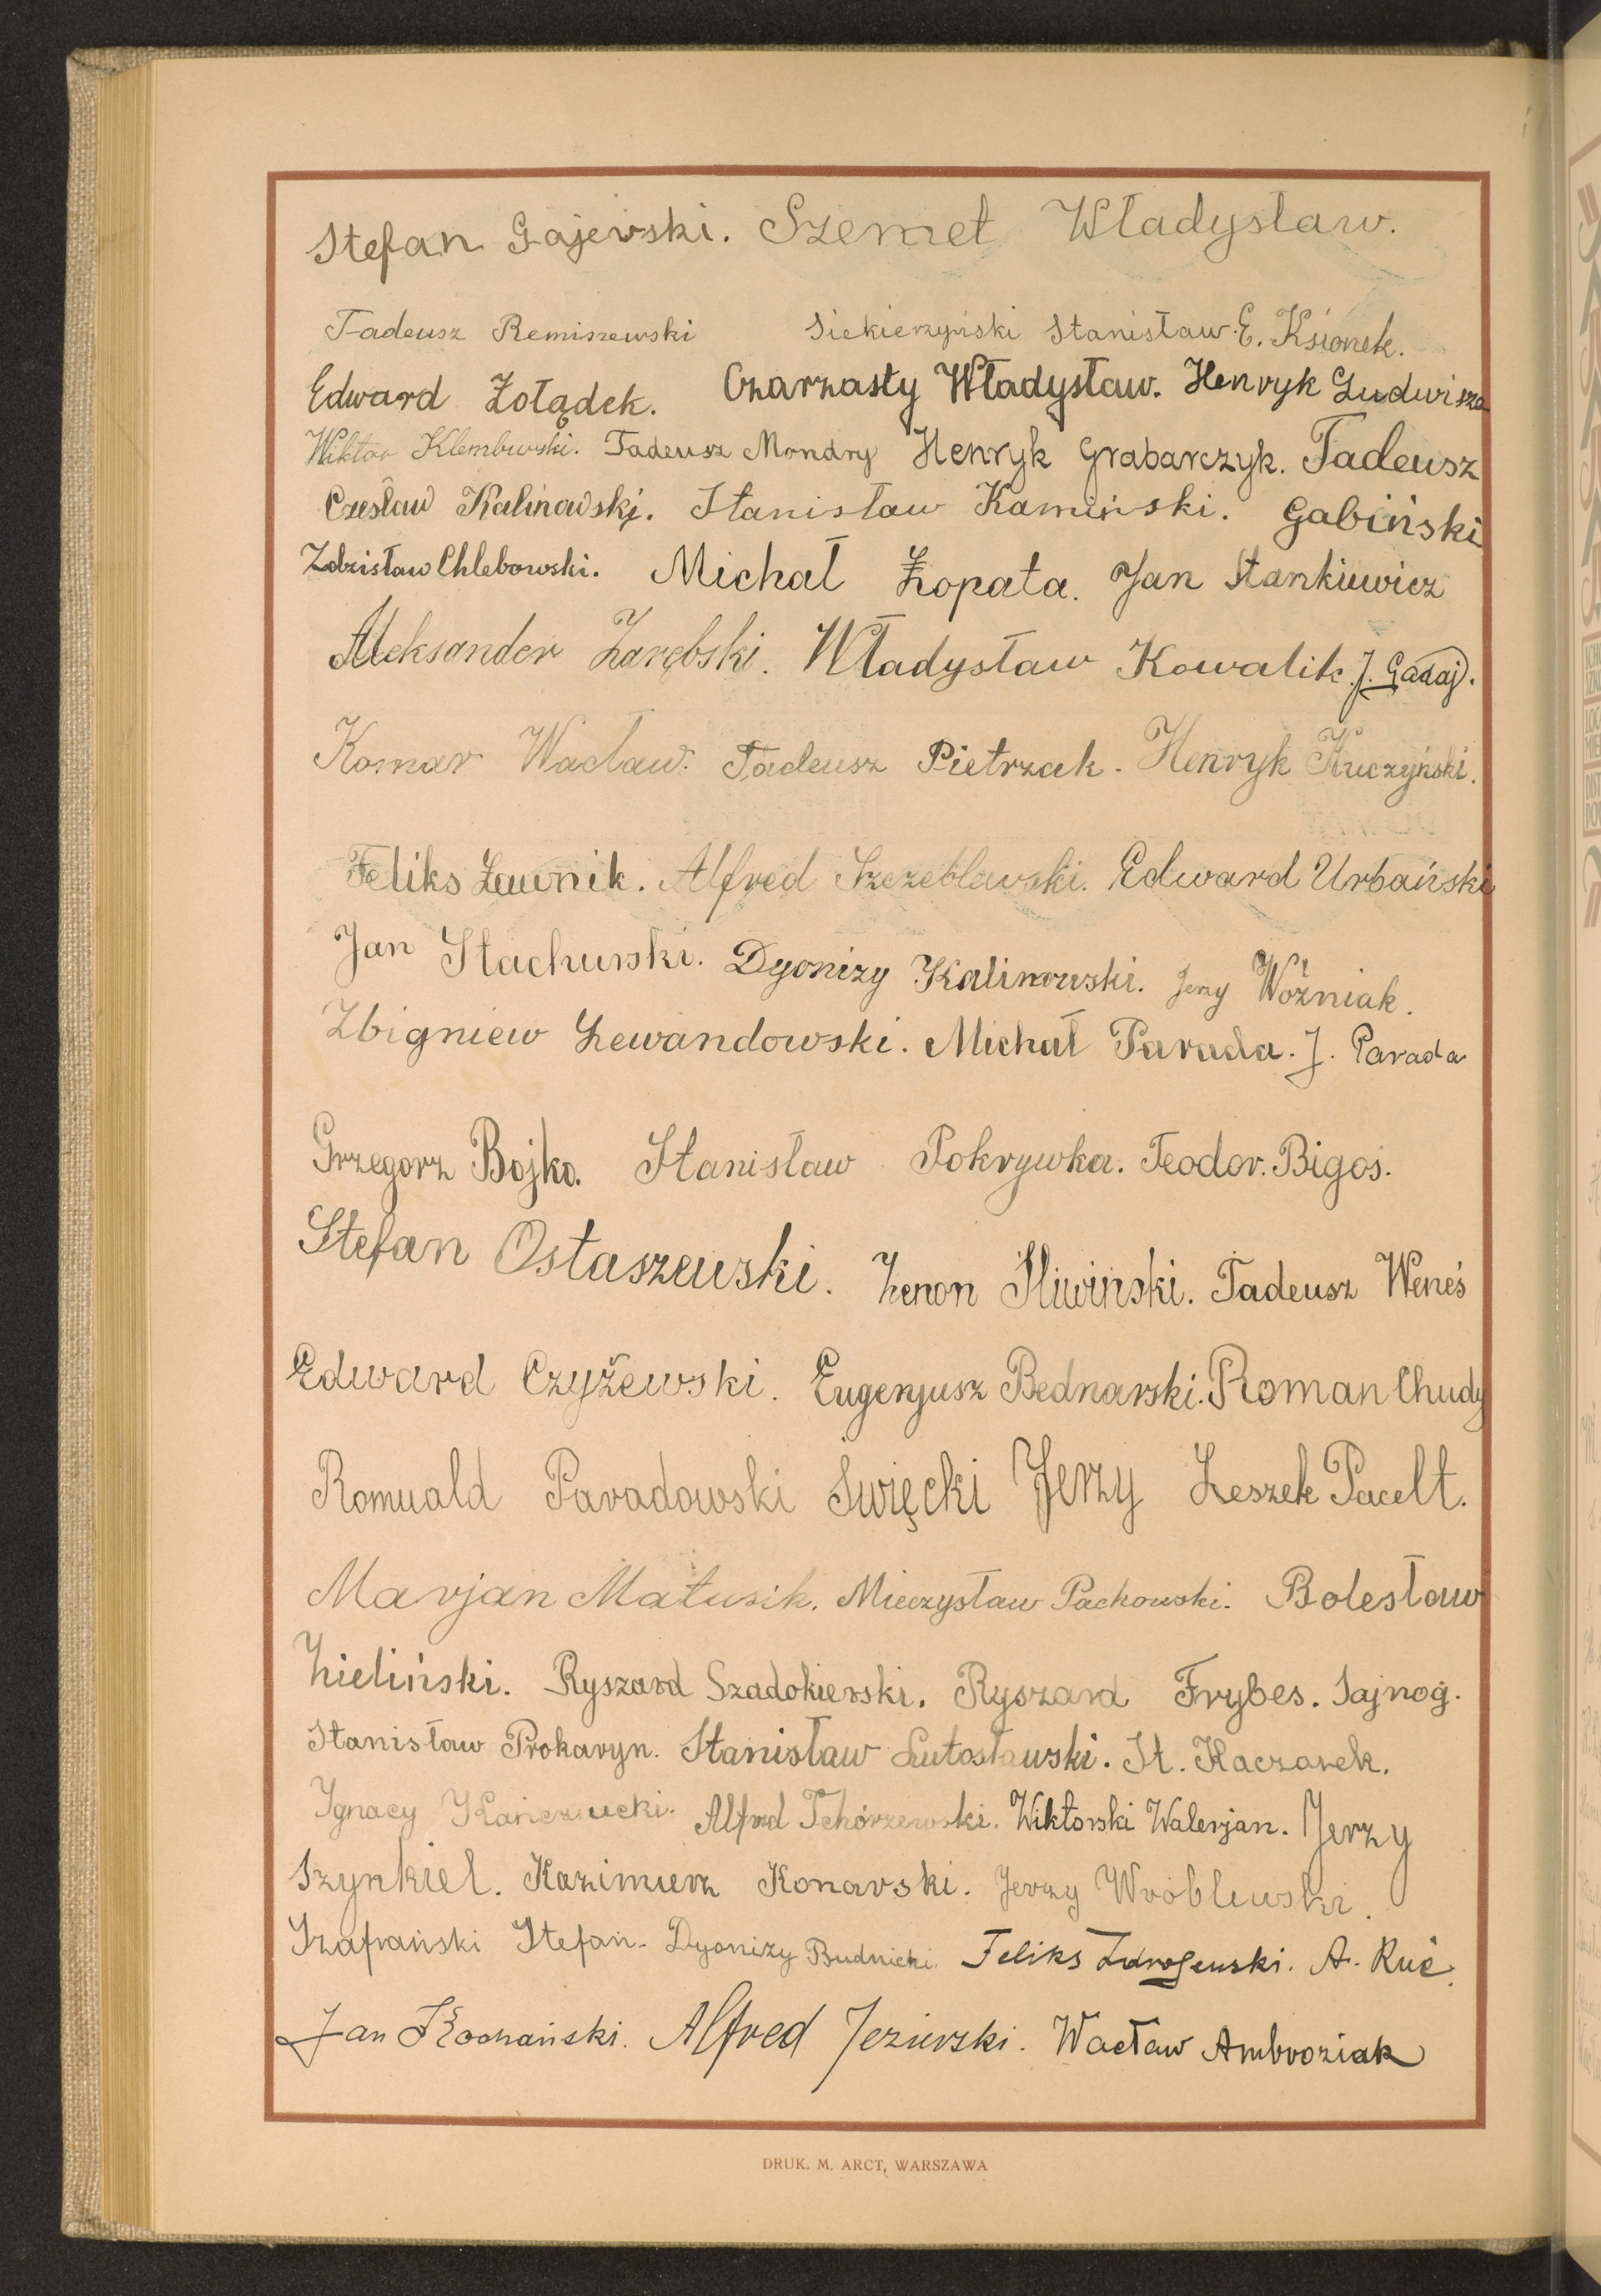 Stefan Gajewski. Szemet Władysław.
Tadeusz Remiszewski Siekierzyński Stanisław E. Ksionek.
Edward Żołądek. Czarzasty Władysław. Henryk Ludwisza
Wiktor Klembowski. Tadeusz Mondry Henryk Grabarczyk. Tadeusz
Czesław Kalinowski. Stanisław Kamiński. Gabiński
Zdzisław Chlebowski. Michał Łopata. Jan Stankiewicz
Aleksander Zarębski. Władysław Kowalik. J. Gadaj.
Komar Wacław. Tadeusz Pietrzak. Henryk Kuczyński.
Feliks Ławnik. Alfred Szczeblewski. Edward Urbański
Jan Stachurski. Dyonizy Kalinowski. Jerzy Woźniak.
Zbigniew Lewandowski. Michał Parada. J. Parada
Grzegorz Bojko. Stanisław Pokrywka. Teodor. Bigos.
Stefan Ostaszewski. Zenon Śliwiński. Tadeusz Weneś
Edward Czyżewski. Eugenjusz Bednarski. Roman Chudy
Romuald Paradowski Święcki Jerzy Leszek Pacelt.
Marjan Matusik. Mieczysław Pachowski. Bolesław
Zieliński. Ryszard Szadokierski. Ryszard Frybes. Sajnog.
Stanisław Prokaryn. Stanisław Lutosławski. St. Kaczarek.
Ignacy Alfred Tchórzewski. Wiktorski Walerjan. Jerzy
Szynkiel. Kazimierz Konarski. Jerzy Wróblewski.
Szafrański Stefan. Dyonizy Budnicki. Feliks A. Ruć.
Jan Kochański. Alfred Jezierski. Wacław Ambroziak
DRUK. M. ARCT, WARSZAWA